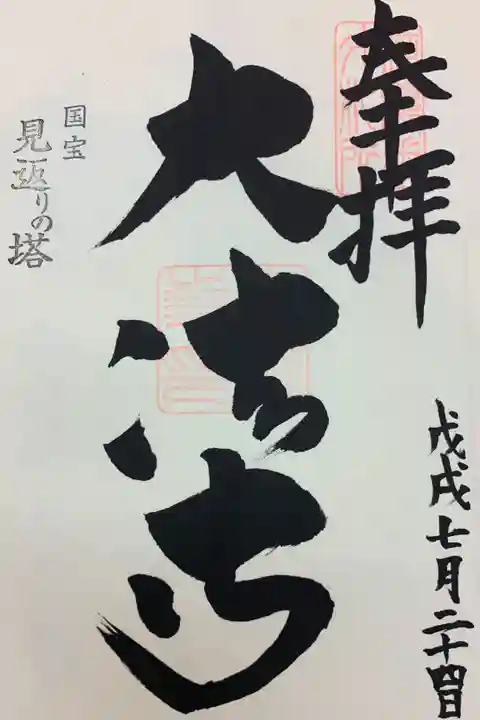 奉拝
戊戌七月二十四日
大法寺
国宝
見返りの塔